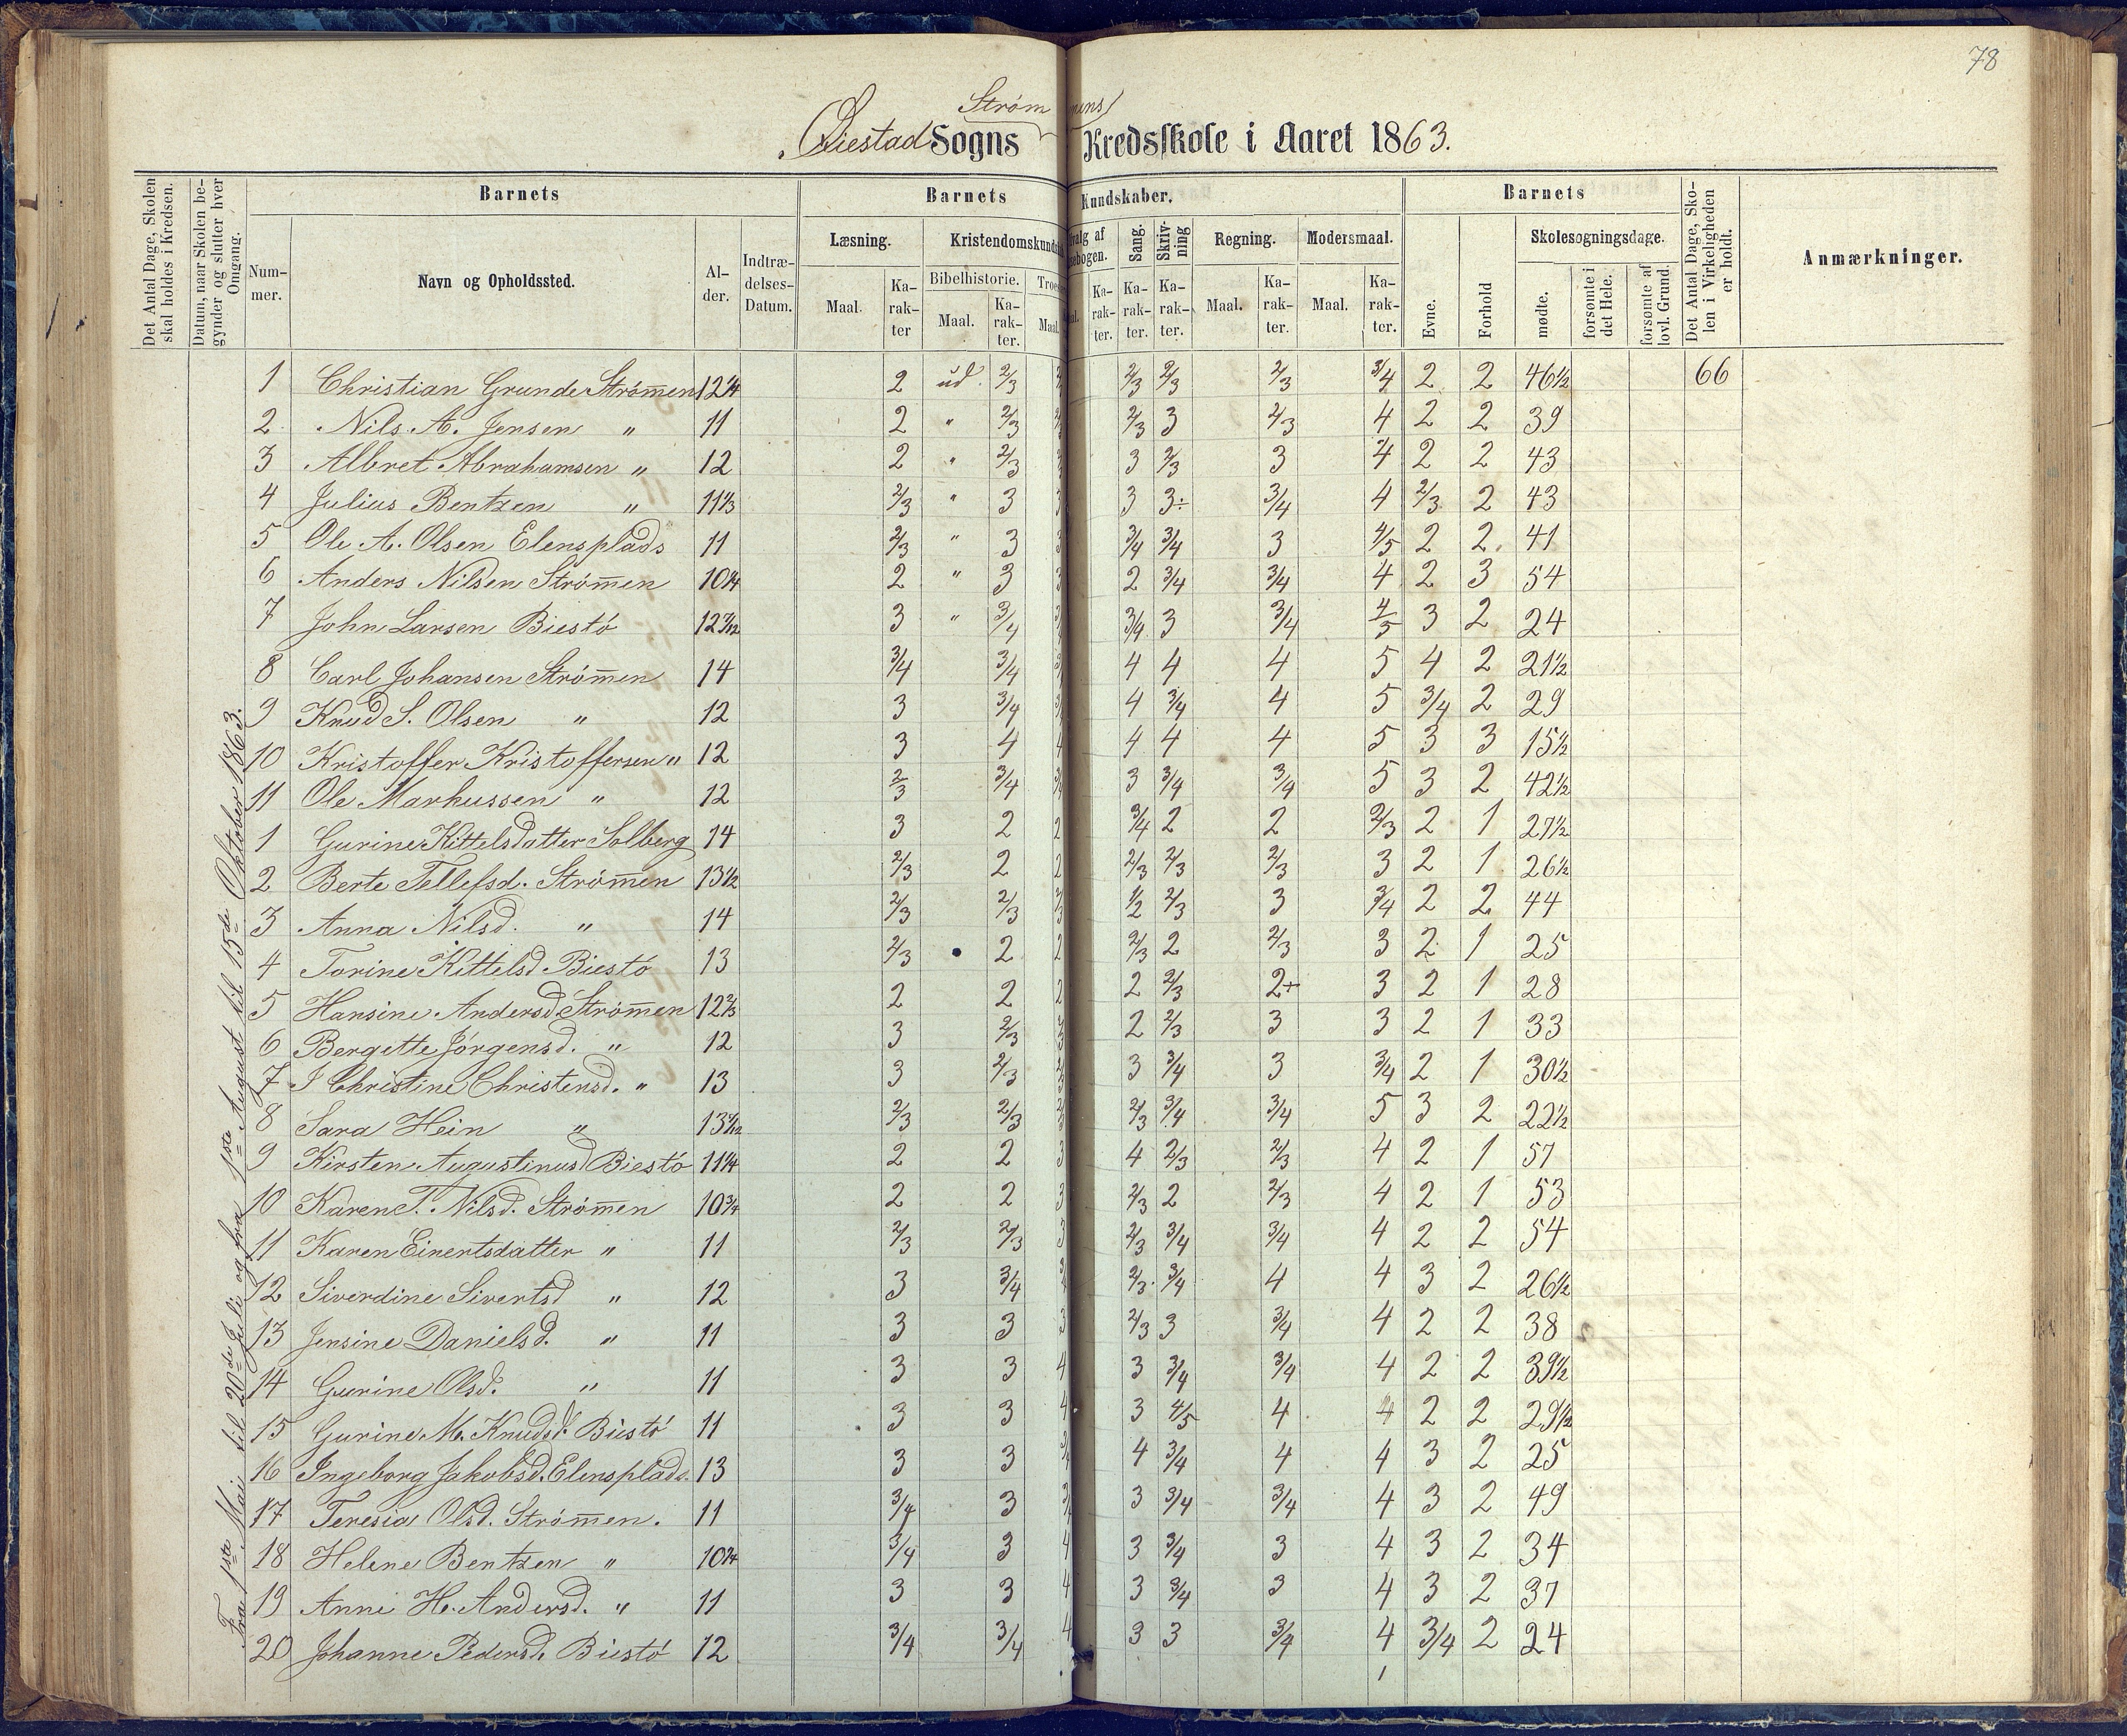 78
Strømmens
Øiestad Sogns Kredsskole i Aaret 1863.
Det Antal Dage, Skolen skal holdes i Kredsen.
Datum, naar Skolen begynder og slutter hver Omgang.
Barnets
Nummer.
Navn og Opholdssted.
Alder.
Indtrædelses-Datum.
Barnets Kundskaber.
Læsning.
Maal.
Karakter
Kristendomskundskab
Bibelhistorie.
Maal.
Karakter.
Maal.
Karakter.
Sang.
Karakter.
Skrivning
Karakter.
Regning.
Maal.
Karakter.
Modersmaal.
Maal.
Karakter.
Barnets
Evne.
Forhold
Skolesøgningsdage.
mødte.
forsømte i det Hele.
forsømte af lovl. Grund.
Det Antal Dage, Skolen i Virkeligheden er holdt.
Anmærkninger.
Fra 1ste Mai til 20de Juli og fra 1ste August til 15de Oktober 1863.
1 Christian Grunde Strømmen 12 1/4 2 ud. 2/3 2/3 2/3 2/3 3/4 2 2 46 1/2 66
2 Nils A. Jensen " 11 2 " 2/3 2/3 3 2/3 4 2 2 39
3 Albret Abrahamsen " 12 2 " 2/3 3 2/3 3 4 2 2 43
4 Julius Bentzen " 11 1/3 2/3 " 3 3 3 3÷ 3/4 4 2/3 2 43
5 Ole A. Olsen Elensplads 11 2/3 " 3 3 3/4 3/4 3 4/5 2 2 41
6 Anders Nilsen Strømmen 10 1/4 2 " 3 3 2 3/4 3/4 4 2 3 54
7 John Larsen Biestö 12 7/12 3 " 3/4 3/4 3 3/4 4/5 3 2 24
8 Carl Johansen Strømmen 14 3/4 3/4 4 4 4 5 4 2 21 1/2
9 Knud S. Olsen " 12 3 3/4 4 3/4 4 5 3/4 2 29
10 Kristoffer Kristoffersen " 12 3 4 4 4 4 4 5 3 3 15 1/2
11 Ole Markussen " 12 2/3 3/4 3/4 3 3/4 3/4 5 3 2 42 1/2
1 Gurine Kittelsdatter Solberg 14 3 2 2 3/4 2 2 2/3 2 1 27 1/2
2 Berte Tellefsd. Strømmen 13 1/2 2/3 2 2 2/3 2/3 2/3 3 2 1 26 1/2
3 Anna Nilsd. " 14 2/3 2/3 2/3 1/2 2/3 3 3/4 2 2 44
4 Torine Kittelsd. Biestö 13 2/3 2 2 2/3 2 2/3 3 2 1 25
5 Hansine Andersd. Strømmen 12 2/3 2 2 2 2 2/3 2+ 3 2 1 28
6 Bergitte Jörgensd. " 12 3 2/3 2 2/3 3 3 2 1 33
7 I Christine Christensd. " 13 3 2/3 3 3/4 3 3/4 2 1 30 1/2
8 Sara Hein " 13 1/12 2/3 2/3 2/3 3/4 3/4 5 3 2 22 1/2
9 Kirsten Augustinusd Biestö 11 1/4 2 2 3 4 2/3 2/3 4 2 1 57
10 Karen T. Nilsd. Strømmen 10 3/4 2 2 3 2/3 2 2/3 4 2 1 53
11 Karen Einertsdatter " 11 2/3 2/3 3 2/3 3/4 3/4 4 2 2 54
12 Siverdine Sivertsd " 12 3 3/4 2/3 3/4 4 4 3 2 26 1/2
13 Jensine Danielsd. " 11 3 3 3 2/3 3 3/4 4 2 2 38
14 Gurine Olsd. " 11 3 3 4 3 3/4 3/4 4 2 2 39 1/2
15 Gurine M. Knudsd. Biestö 11 3 3 4 3 4/5 4 4 2 2 29 1/2
16 Ingeborg Jakobsd. Elensplads. 13 3 3 3/4 4 3/4 4 4 3 2 25
17 Teresia Olsd. Strømmen. 11 3/4 3 3/4 3 3/4 3/4 4 3 2 49
18 Helene Bentzen " 10 3/4 3/4 3 4 3 3/4 3 4 3 2 34
19 Anne H. Andersd. " 11 3 3 4 3 3/4 3 4 3 2 37
20 Johanne Pedersd. Biestö 12 3/4 3/4 4 3 3 3/4 4 3/4 2 24